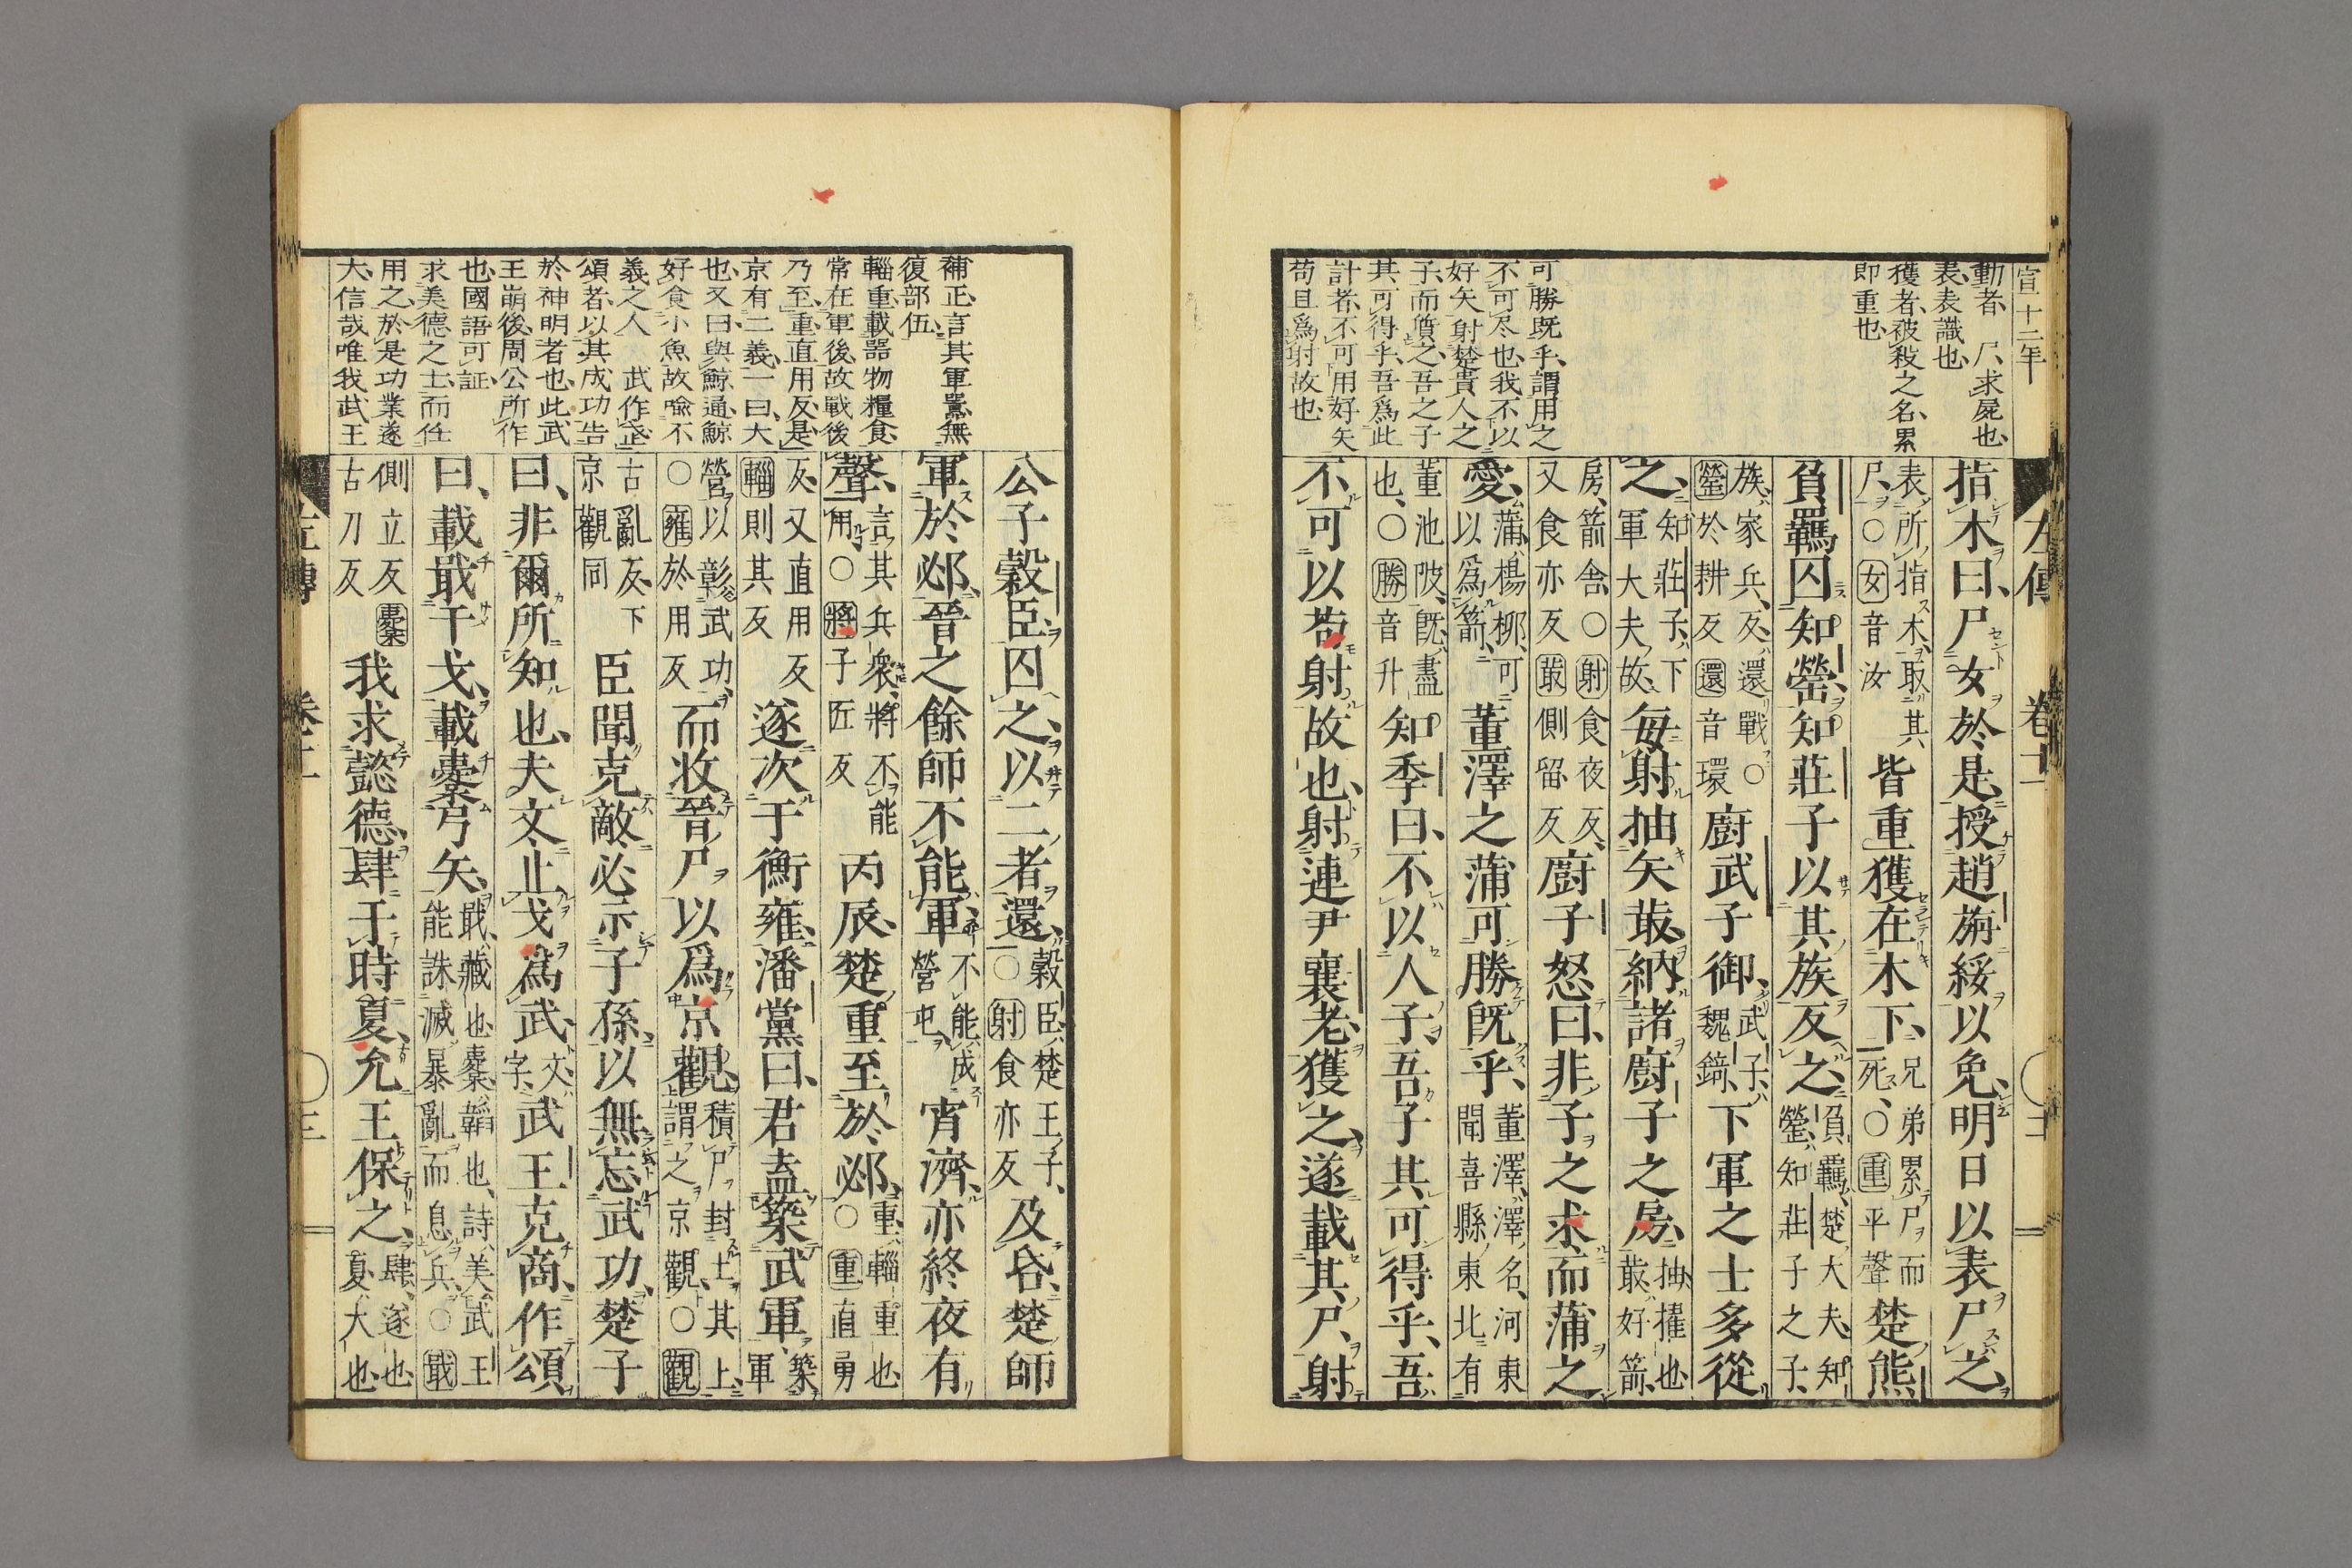 宣十二年
動者、尸、求屍也、
表、表識也、
獲者、被殺之名、累
即重也、
可勝既乎、謂用之
不可尽也、我不以
好矢射楚貴人之
子、而質之、吾之子
其可得乎、吾爲此
計者、不可用好矢
苟且爲射故也、
左傳　卷十一
指木曰、尸女於是、授趙旃綏以免、明日以表尸之、
表所指木、取其尸、○女音汝　皆重獲在木下、兄弟累尸而死、○重平聲　楚熊
負羈囚知罃、知莊子以其族反之、負羈、楚大夫、知罃、知莊子之子、
族、家兵、反、還戰○罃於耕反還音環　廚武子御、武子、魏錡、下軍之士多從
之、知莊子、下軍大夫、故、每射抽矢菆、納諸廚子之房、抽、擢也、菆、好箭、
房、箭舍、○射食夜反、又食亦反菆側留反　廚子怒曰、非子之求、而蒲之
愛、蒲、楊柳、可以爲箭、董澤之蒲、可勝既乎、董澤、澤名、河東聞喜縣東北有
董池陂、既、盡也、○勝音升　知季曰、不以人子、吾子其可得乎、吾
不可以苟射故也、射連尹襄老、獲之、遂載其尸、射
補正、言其軍嚣無
復部伍、
輜重、載器物糧食、
常在軍後、故戰後
乃至、重、直用反、是
京有二義、一曰、大
也、又曰、與鯨通、鯨
好食小魚故喻不
義之人　武作、武
頌者、以其成功告
於神明者也、此武
王崩後、周公所作
也、國語可証、
求美德之士、而任
用之、於是功業遂
大、信哉唯我武王
公子穀臣、囚之、以二者還、穀臣、楚王子、○射食亦反　及昏、楚師
軍於邲、晉之餘師不能軍、不能成營屯、宵濟、亦終夜有
聲、言其兵衆、將不能用、○將子匠反　丙辰、楚重至於邲、重、輜重也○重直勇
反、又直用反輜則其反　遂次于衡雍、潘黨曰、君盍築武軍、築軍
營以彰武功、○雍於用反　而收晉尸以爲京觀、積尸封土其上、謂之京觀、○觀
古亂反、下京觀同　臣聞克敵、必示子孫、以無忘武功、楚子
曰、非爾所知也、夫文、止戈爲武、文、字、武王克商、作頌
曰、載戢干戈、載櫜弓矢、戢、藏也、櫜、韜也、詩、美武王能誅滅暴亂而息兵、○戢
側立反櫜古刀反　我求懿德、肆于時夏、允王保之、肆、遂也、夏、大也、